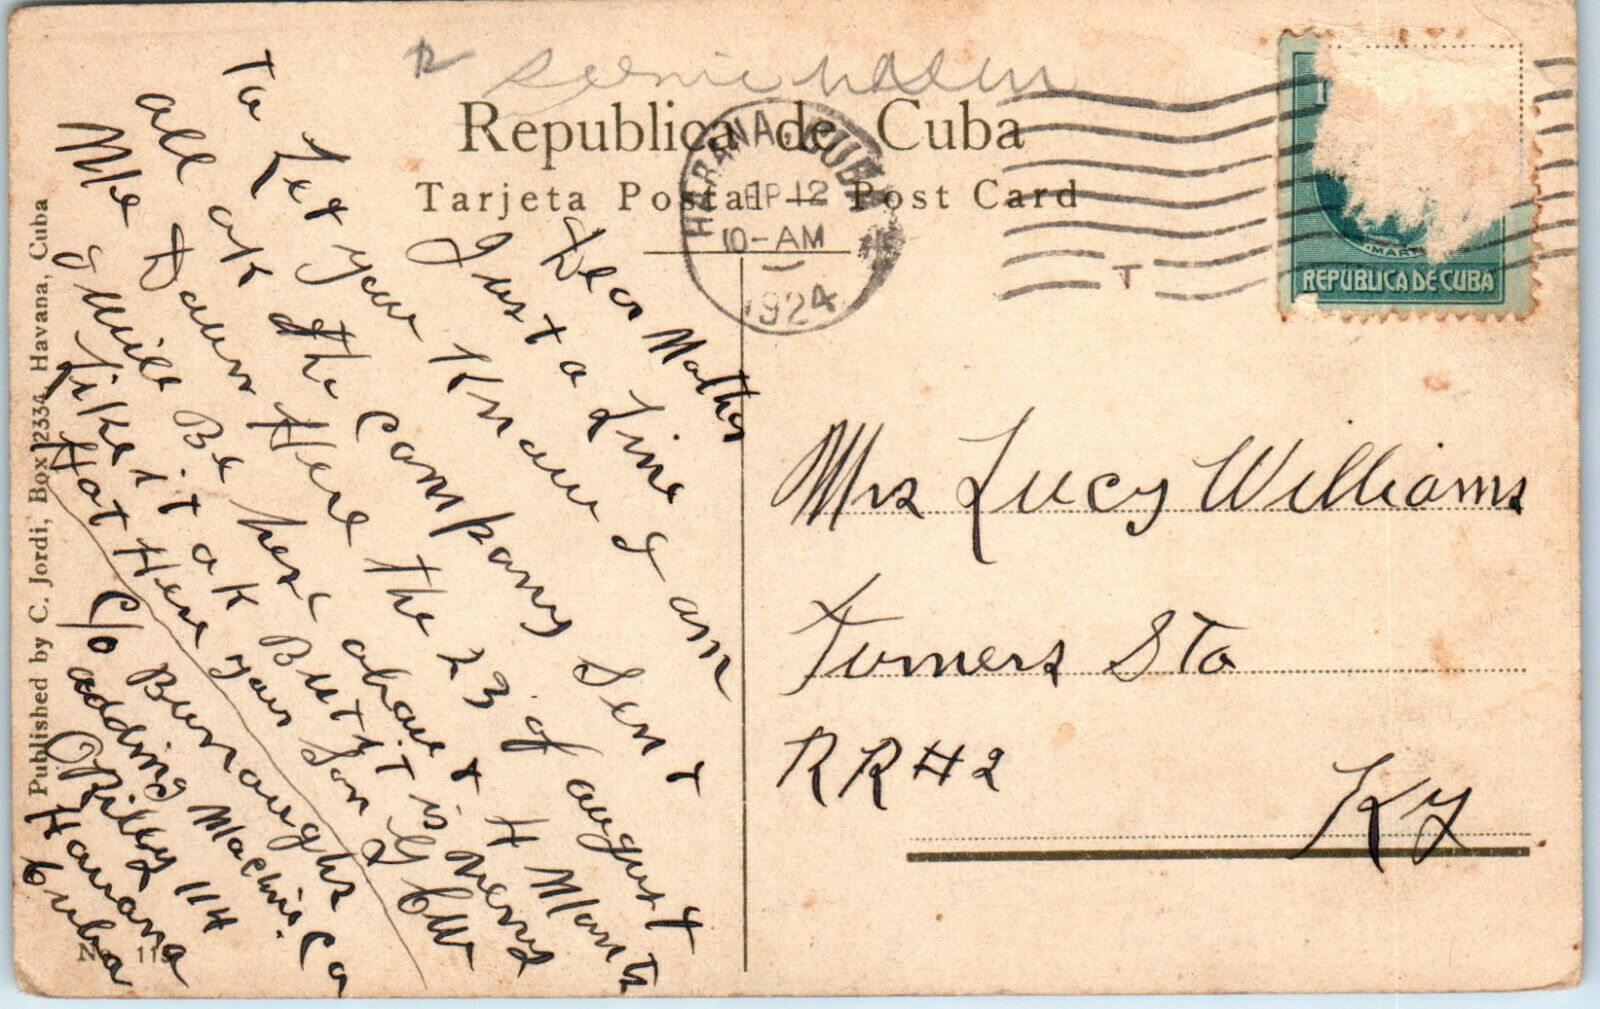 Republica de Cuba
Tarjeta Postal — Post Card
HABANA, CUBA
SEP 12
10-AM
1924
T
1
MART
REPUBLICA DE CUBA
Dear Mother
Just a Line
To Let your Know I am
all ok the company Sent
Me Down Here the 23 of august
I will Be here about 4 Months
Like it ok But it is Very
Hot Here your Son
C/o Burroughs
adding Machine Co
OReilly 114
Havana
Cuba
Mrs Lucy Williams
Turners Sta
RR#2
Ky
Published by C. Jordi, Box 2334, Havana, Cuba